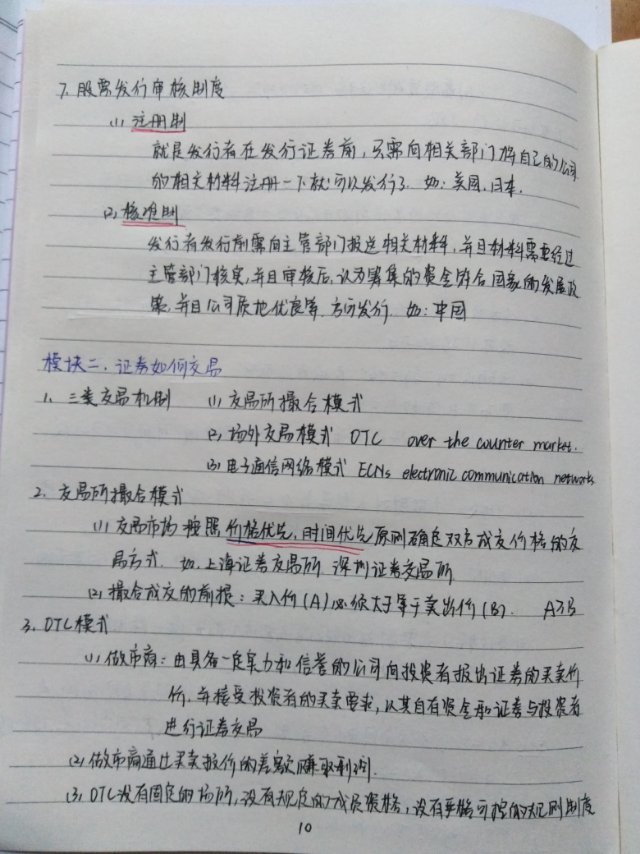 7. 股票发行审核制度
(1) 注册制
就是发行者在发行证券前，只需向相关部门将自己的公司
的相关材料注册一下就可以发行了. 如: 美国, 日本.
(2) 核准制
发行者发行前需向主管部门报送相关材料, 并且材料需要经过
主管部门核实, 并且审核后, 认为筹集的资金符合国家的发展政
策, 并且公司质地优良等, 方可发行. 如: 中国
模块二. 证券如何交易
1. 三类交易机制 (1) 交易所撮合模式
(2) 场外交易模式 OTC over the counter market.
(3) 电子通信网络模式 ECNs electronic communication networks
2. 交易所撮合模式
(1) 交易市场按照价格优先, 时间优先原则确定双方成交价格的交
易方式. 如. 上海证券交易所 深圳证券交易所
(2) 撮合成交的前提: 买入价(A)必须大于等于卖出价(B). A≥B
3. OTC模式
(1) 做市商: 由具备一定实力和信誉的公司向投资者报出证券的买卖价
价, 并接受投资者的买卖要求, 以其自有资金和证券与投资者
进行证券交易
(2) 做市商通过买卖报价的差额赚取利润.
(3) OTC没有固定的场所, 没有规定的成员资格, 没有严格可控的规则制度
10